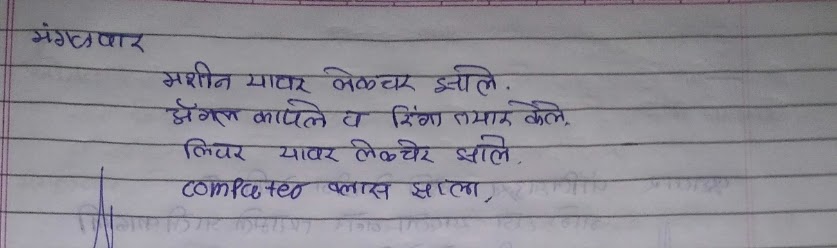 मंगळवार
मशीन यावर लेकचर झाले.
अँगल कापले व रिंग तयार केले.
लिवर यावर लेकचेर झाले.
computeo क्लास झाला,